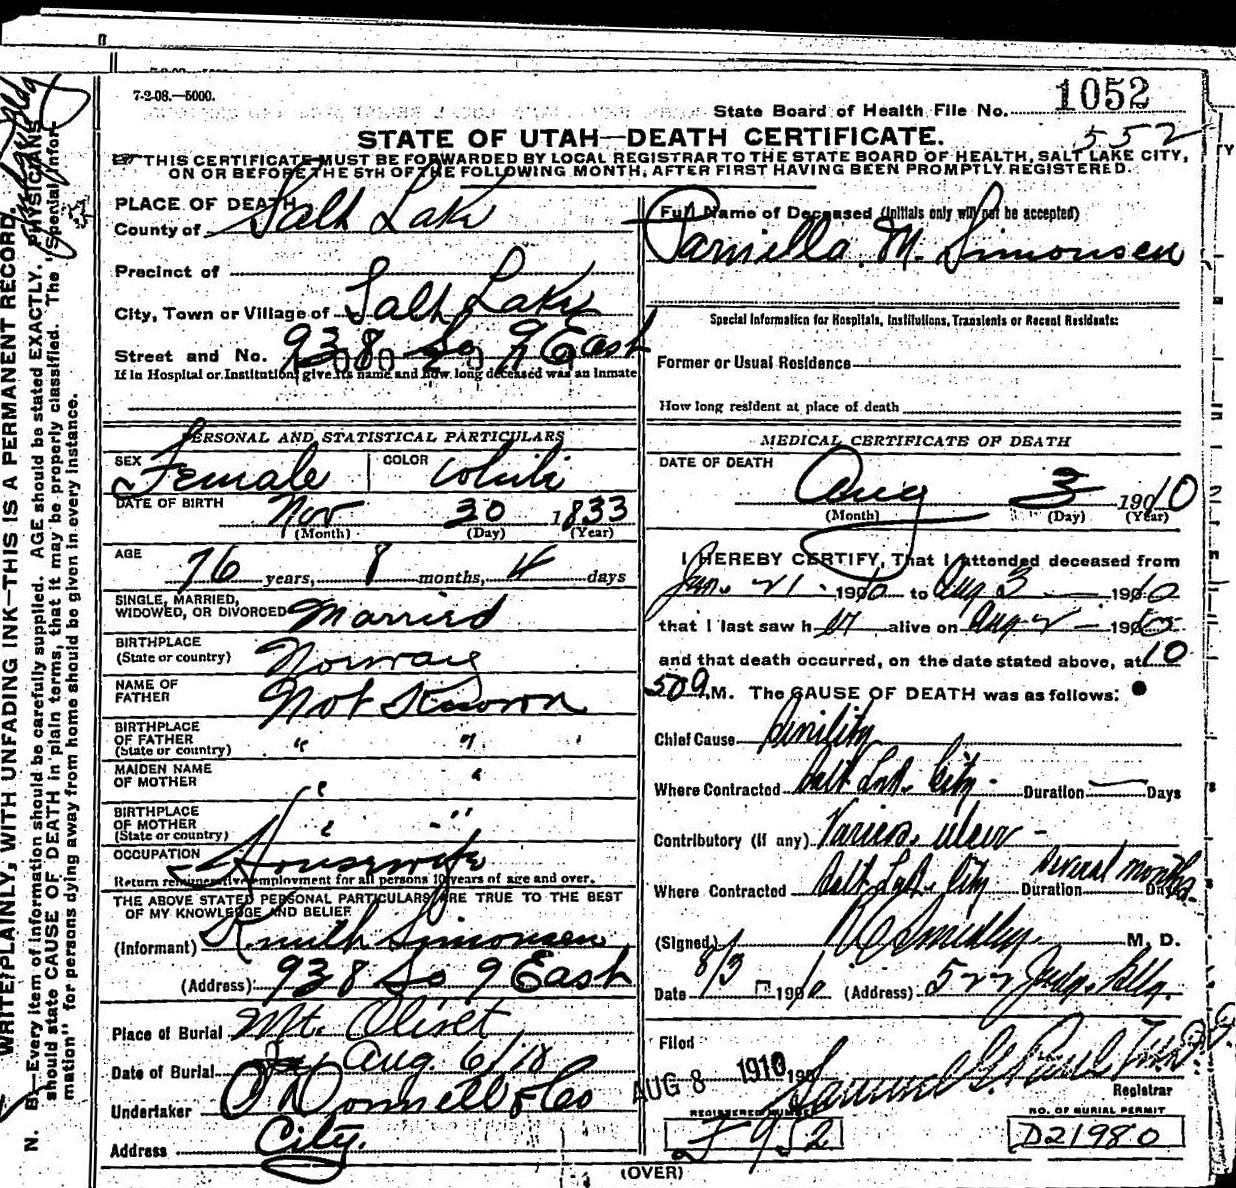 7-2-08.—5000.
State Board of Health File No. 1052
552
STATE OF UTAH—DEATH CERTIFICATE.
THIS CERTIFICATE MUST BE FORWARDED BY LOCAL REGISTRAR TO THE STATE BOARD OF HEALTH, SALT LAKE CITY,
ON OR BEFORE THE 5TH OF THE FOLLOWING MONTH, AFTER FIRST HAVING BEEN PROMPTLY REGISTERED.
PLACE OF DEATH
County of Salt Lake
Precinct of
City, Town or Village of Salt Lake
Street and No. 938 So 9 East
If in Hospital or Institution, give its name and how long deceased was an inmate
PERSONAL AND STATISTICAL PARTICULARS
SEX Female COLOR White
DATE OF BIRTH Nov 30 1833
(Month) (Day) (Year)
AGE 76 years, 8 months, 4 days
SINGLE, MARRIED,
WIDOWED, OR DIVORCED Married
BIRTHPLACE
(State or country) Norway
NAME OF
FATHER Not Known
BIRTHPLACE
OF FATHER
(State or country) " "
MAIDEN NAME
OF MOTHER " "
BIRTHPLACE
OF MOTHER
(State or country) " "
OCCUPATION Housewife
Return remunerative employment for all persons 10 years of age and over.
THE ABOVE STATED PERSONAL PARTICULARS ARE TRUE TO THE BEST
OF MY KNOWLEDGE AND BELIEF
(Informant) Knuth Simonsen
(Address) 938 So 9 East
Place of Burial Mt. Olivet
Date of Burial Aug. 6/10
Undertaker O'Donnell & Co
Address City.
Full Name of Deceased (Initials only will not be accepted)
Parniella M. Simonsen
Special Information for Hospitals, Institutions, Transients or Recent Residents:
Former or Usual Residence
How long resident at place of death
MEDICAL CERTIFICATE OF DEATH
DATE OF DEATH
Aug 3 1910
(Month) (Day) (Year)
I HEREBY CERTIFY, That I attended deceased from
Jan. 21 - 1910 to Aug 3 — 1910
that I last saw her alive on Aug 2 - 1910
and that death occurred, on the date stated above, at 10
50 a.M. The CAUSE OF DEATH was as follows:
Chief Cause Senility
Where Contracted Salt Lake City - Duration — Days
Contributory (if any) Varicose ulcer -
Where Contracted Salt Lake City Duration several months Days
(Signed) M. D.
Date 8/3 1910 (Address) 522 Judge Bldg.
Filed
AUG 8 1910 190 Samuel G. Paul
Registrar
REGISTERED NUMBER
F 952
NO. OF BURIAL PERMIT
D21980
(OVER)
WRITE PLAINLY, WITH UNFADING INK—THIS IS A PERMANENT RECORD.
N. B.—Every item of information should be carefully supplied. AGE should be stated EXACTLY. PHYSICIANS
should state CAUSE OF DEATH in plain terms, that it may be properly classified. The "Special Infor-
mation" for persons dying away from home should be given in every instance.